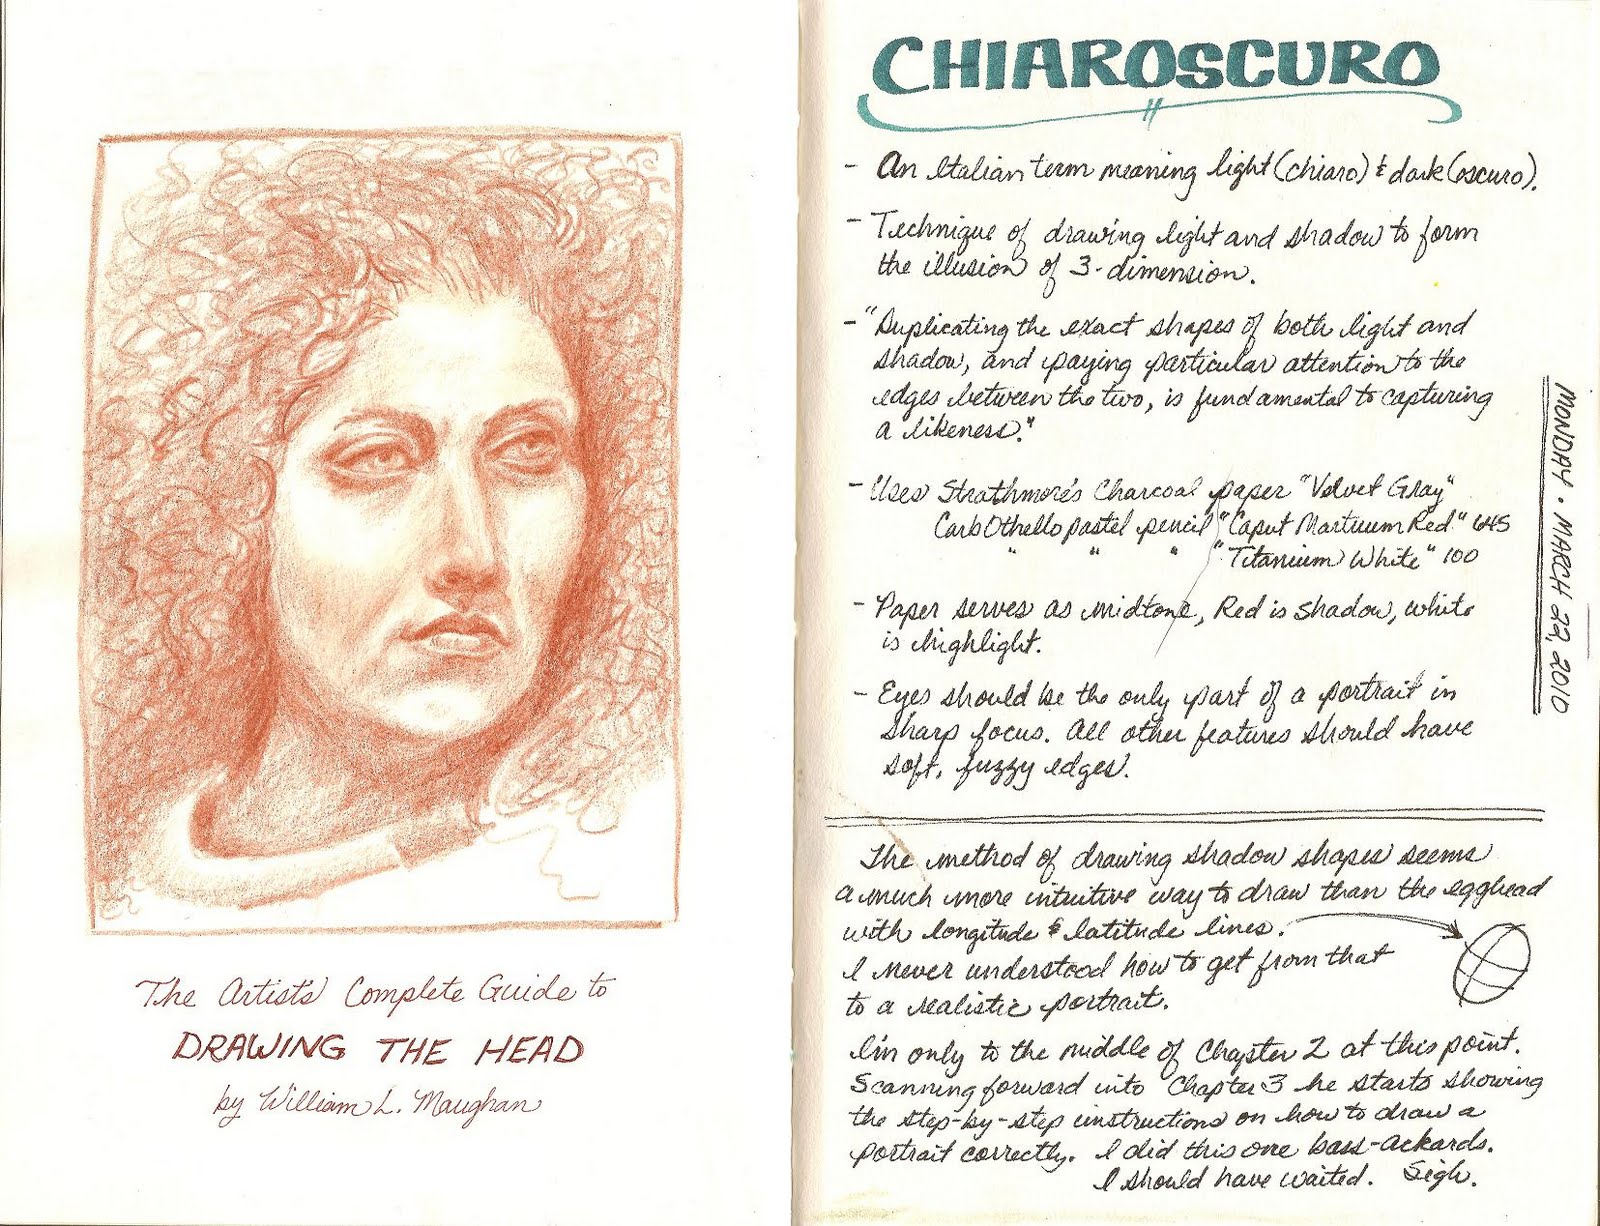 The Artist's Complete Guide to
DRAWING THE HEAD
by William L. Maughan
CHIAROSCURO
- An Italian term meaning light (chiaro) & dark (oscuro).
- Technique of drawing light and shadow to form
the illusion of 3-dimension.
- "Duplicating the exact shapes of both light and
shadow, and paying particular attention to the
edges between the two, is fundamental to capturing
a likeness."
- Uses Strathmore's Charcoal paper "Velvet Gray"
CarbOthello pastel pencil "Caput Mortuum Red" 645
" " " "Titanium White" 100
- Paper serves as midtone, Red is shadow, white
is highlight.
- Eyes should be the only part of a portrait in
sharp focus. All other features should have
soft, fuzzy edges.
The method of drawing shadow shapes seems
a much more intuitive way to draw than the egghead
with longitude & latitude lines.
I never understood how to get from that
to a realistic portrait.
I'm only to the middle of Chapter 2 at this point.
Scanning forward into Chapter 3 he starts showing
the step-by-step instructions on how to draw a
portrait correctly. I did this one bass-ackards.
I should have waited. Sigh.
MONDAY · MARCH 22, 2010